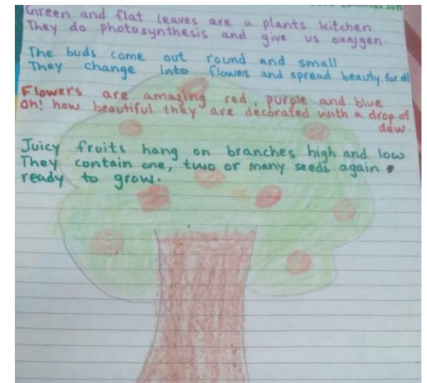 Green and flat leaves are a plants kitchen
They do photosynthesis and give us oxeygen.
The buds come out round and small
They change into flowers and spread beauty for all
Flowers are amazing red, purple and blue
Oh! how beautiful they are decorated with a drop of
dew
Juicy fruits hang on branches high and low
They contain one, two or many seeds again
ready to grow.